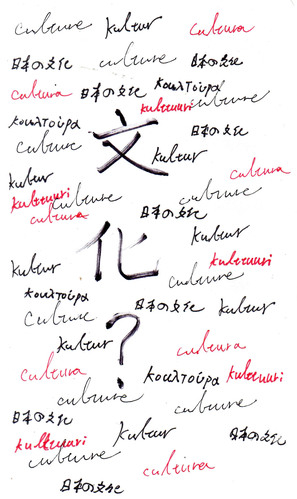 culture kultur cultura
日本の文化 culture 日本の文化
cultura 日本の文化 κουλτούρα
kulttuuri culture
κουλτούρα 文 日本の文化
culture kultur
cultura
kultur
kulttuuri culture culture
cultura 日本の文化
kultur
化
kultur kulttuuri
culture
κουλτούρα
日本の文化 kultur
culture
kultur ? cultura
cultura κουλτούρα kulttuuri
culture culture
日本の文化
kulttuuri kultur 日本の文化
culture
cultura
日本の文化